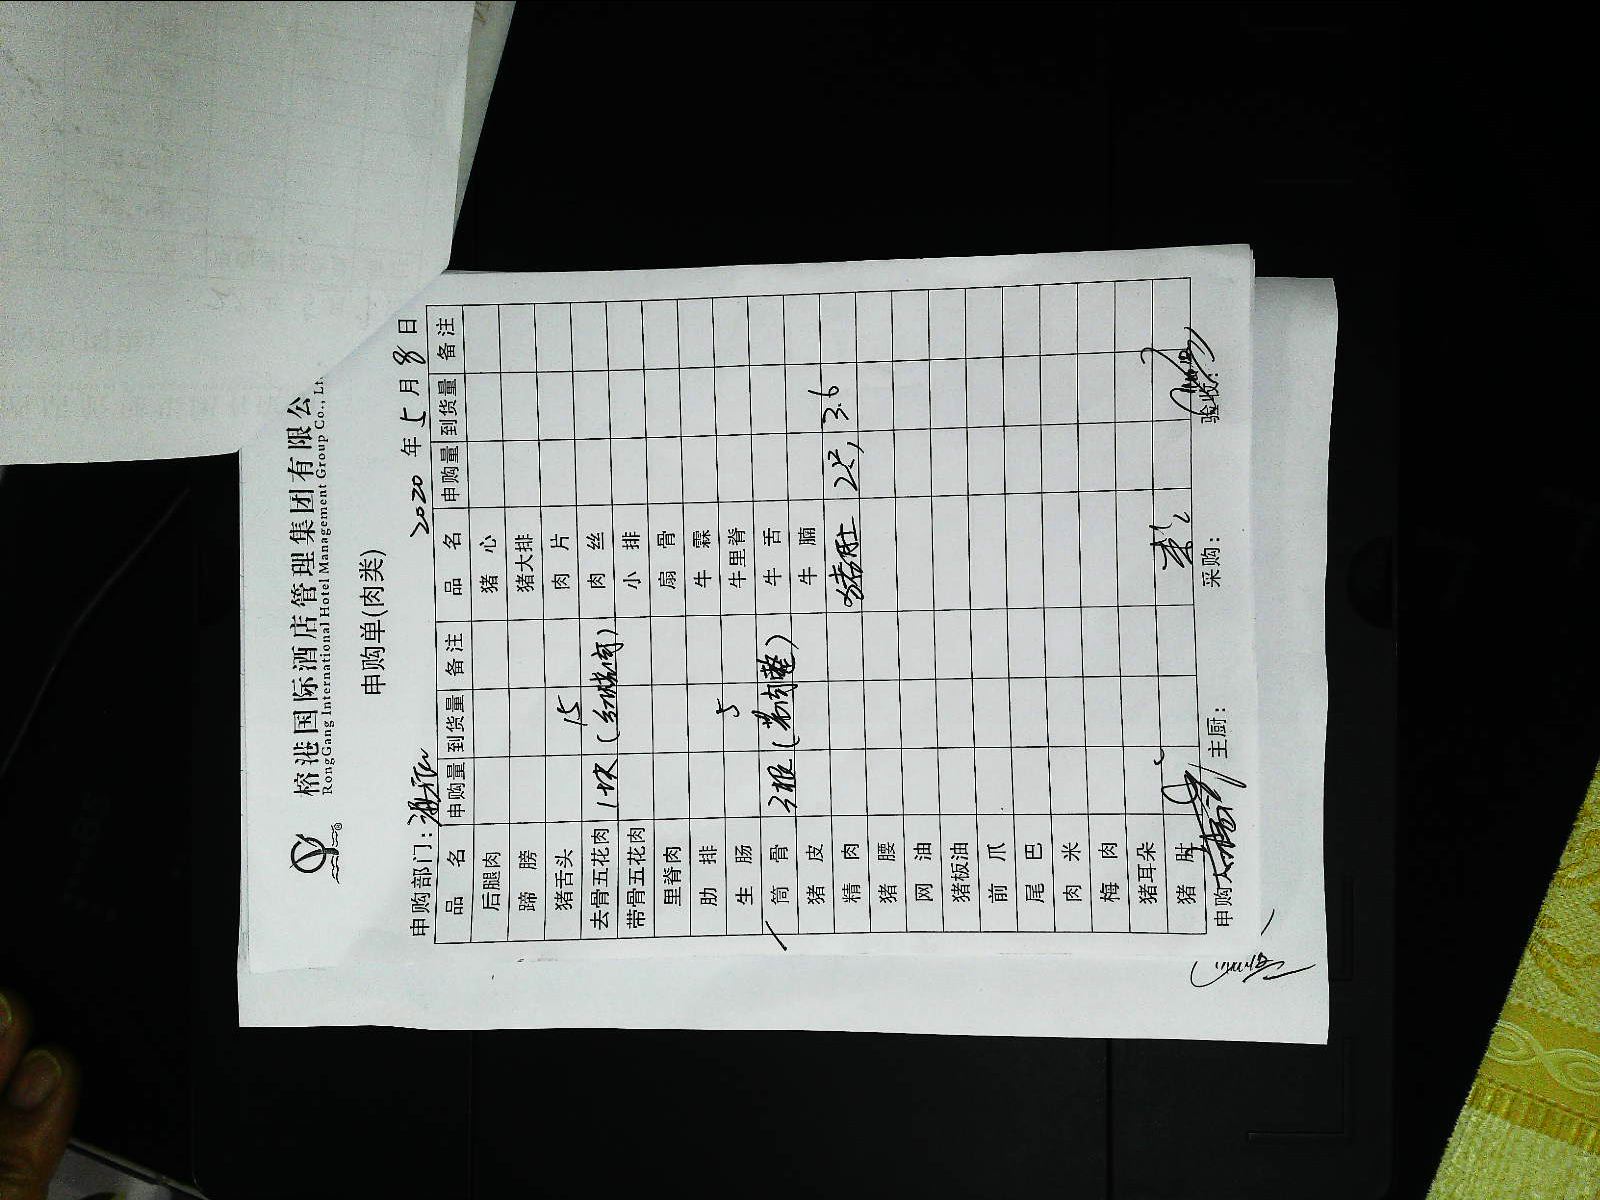 榕港国际酒店管理集团有限公
RongGang International Hotel Management Group Co., Lt
申购单(肉类)
申购部门: 2020 年 5 月 8 日
品 名 申购量 到货量 备注 品 名 申购量 到货量 备注
后腿肉 猪 心
蹄 膀 猪大排
猪舌头 肉 片
去骨五花肉 1块 15 (红烧肉) 肉 丝
带骨五花肉 小 排
里脊肉 扇 骨
肋 排 牛 霖
生 肠 牛里脊
筒 骨 3根 5 牛 舌
猪 皮 牛 腩
精 肉 猪肚 3.6
猪 腰
网 油
猪板油
前 爪
尾 巴
肉 米
梅 肉
猪耳朵
猪 肚
申购人 主厨: 采购: 验收: